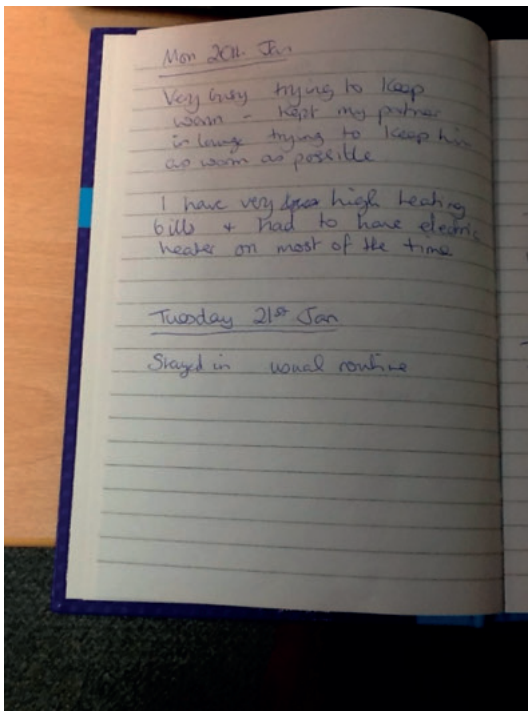 Mon 20th Jan
Very busy trying to keep
warm - kept my partner
in lounge trying to keep him
as warm as possible
I have very high heating
bills + had to have electric
heater on most of the time
Tuesday 21st Jan
Stayed in usual routine